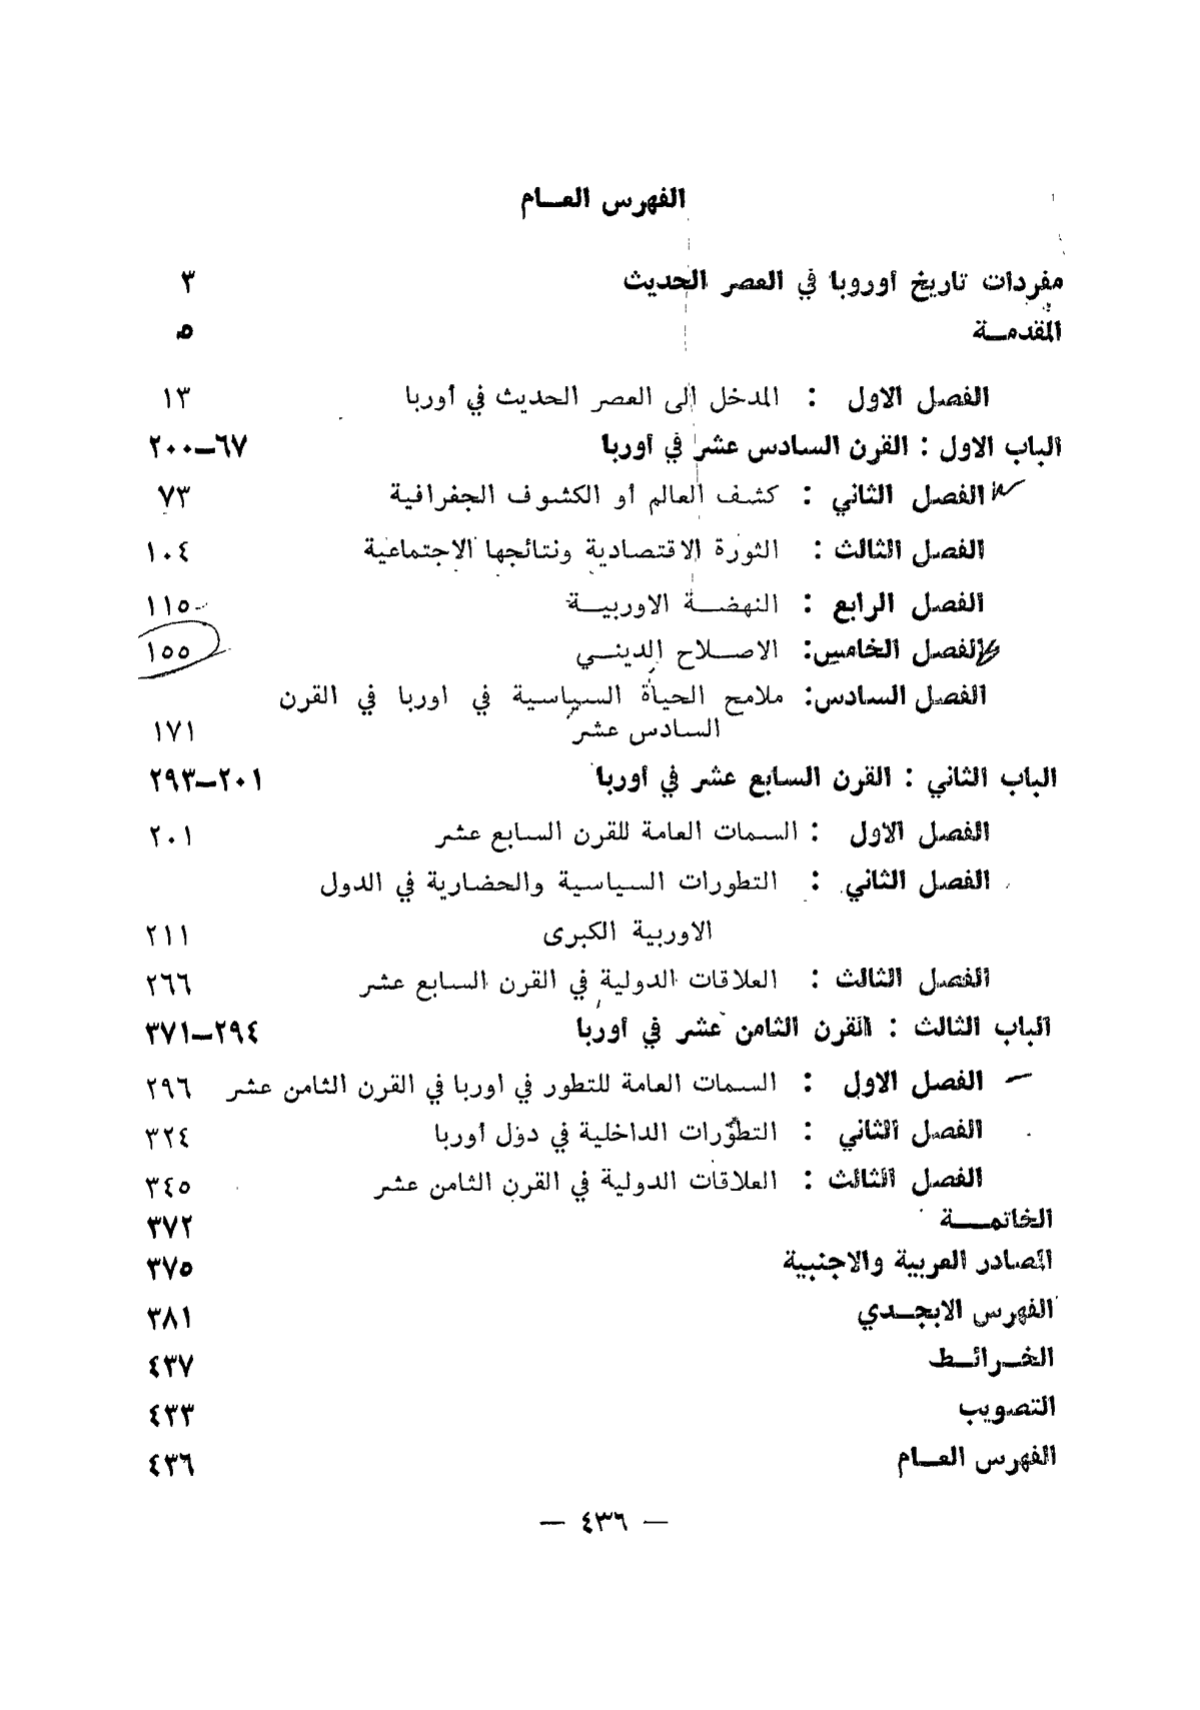 الفهرس العـــام
مفردات تاريخ أوروبا في العصر الحديث ٣
المقدمـــة ٥
الفصل الاول : المدخل إلى العصر الحديث في أوربا ١٣
الباب الاول : القرن السادس عشر في أوربا ٦٧–٢٠٠
الفصل الثاني : كشف العالم أو الكشوف الجغرافية ٧٣
الفصل الثالث : الثورة الاقتصادية ونتائجها الاجتماعية ١٠٤
الفصل الرابع : النهضـــة الاوربيـــة ١١٥
الفصل الخامس: الاصـــلاح الدينـــي ١٥٥
الفصل السادس: ملامح الحياة السياسية في اوربا في القرن
السادس عشر ١٧١
الباب الثاني : القرن السابع عشر في أوربا ٢٠١–٢٩٣
الفصل الاول : السمات العامة للقرن السابع عشر ٢٠١
الفصل الثاني : التطورات السياسية والحضارية في الدول
الاوربية الكبرى ٢١١
الفصل الثالث : العلاقات الدولية في القرن السابع عشر ٢٦٦
الباب الثالث : القرن الثامن عشر في أوربا ٢٩٤–٣٧١
الفصل الاول : السمات العامة للتطور في اوربا في القرن الثامن عشر ٢٩٦
الفصل الثاني : التطورات الداخلية في دول أوربا ٣٢٤
الفصل الثالث : العلاقات الدولية في القرن الثامن عشر ٣٤٥
الخاتمـــة ٣٧٢
المصادر العربية والاجنبية ٣٧٥
الفهرس الابجـــدي ٣٨١
الخـــرائـــط ٤٣٧
التصويب ٤٣٣
الفهرس العـــام ٤٣٦
— ٤٣٦ —